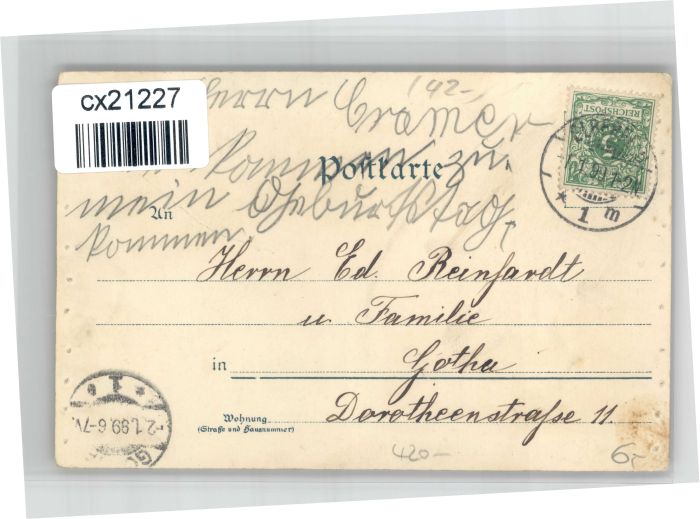 cx21227
142-
Herrn Cramer
kommen zu
mein Geburtstag,
kommen
Postkarte
REICHSPOST
5
An
* 1 m
Herrn Ed. Reinhardt
u. Familie
in Gotha
Wohnung
(Straße und Hausnummer)
Dorotheenstraße 11.
* 1 *
-2.1.99.6-7V.
420-
6,-